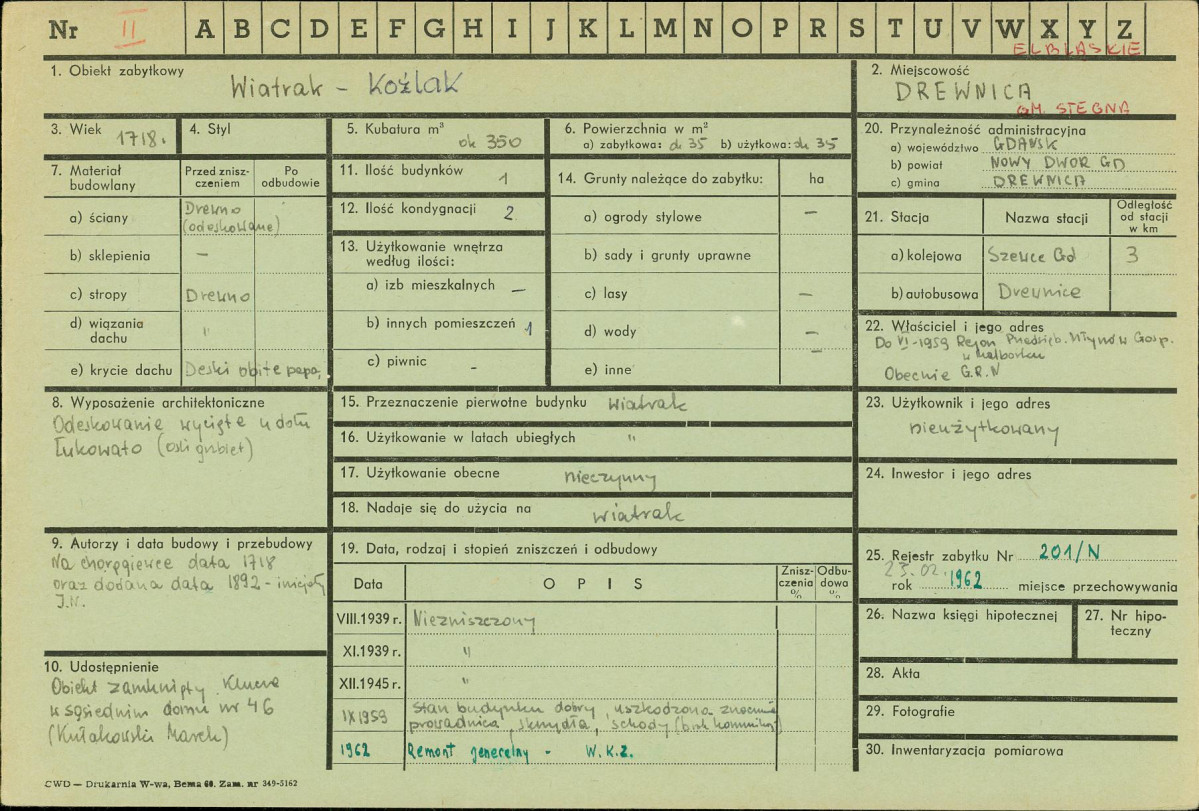 Nr II A B C D E F G H I J K L M N O P R S T U V W X Y Z
ELBLĄSKIE
1. Obiekt zabytkowy
Wiatrak - Koźlak
2. Miejscowość
DREWNICA
GM. STEGNA
3. Wiek 1718.
4. Styl
5. Kubatura m³ ok 350
6. Powierzchnia w m²
a) zabytkowa: ok 35 b) użytkowa: ok 35
20. Przynależność administracyjna
a) województwo GDAŃSK
b) powiat NOWY DWOR GD
c) gmina DREWNICA
7. Materiał budowlany
Przed znisz-
czeniem
Po
odbudowie
a) ściany Drewno
(odeskowane)
b) sklepienia —
c) stropy Drewno
d) wiązania
dachu "
e) krycie dachu Deski obite papą
11. Ilość budynków 1
12. Ilość kondygnacji 2
13. Użytkowanie wnętrza
według ilości:
a) izb mieszkalnych —
b) innych pomieszczeń 1
c) piwnic -
14. Grunty należące do zabytku: ha
a) ogrody stylowe —
b) sady i grunty uprawne
c) lasy —
d) wody —
e) inne —
21. Stacja Nazwa stacji
Odległość
od stacji
w km
a) kolejowa Szewce Gd 3
b) autobusowa Drewnica
22. Właściciel i jego adres
Do VI-1959 Rejon. Przedsięb. Młynów Gosp.
w Malborku
Obecnie G.R.N
8. Wyposażenie architektoniczne
Odeskowanie wycięte u dołu
Łukowato (ośli grzbiet)
15. Przeznaczenie pierwotne budynku Wiatrak
16. Użytkowanie w latach ubiegłych "
17. Użytkowanie obecne nieczynny
18. Nadaje się do użycia na wiatrak
23. Użytkownik i jego adres
nieużytkowany
24. Inwestor i jego adres
9. Autorzy i data budowy i przebudowy
Na chorągiewce data 1718
oraz dodana data 1892 - inicjały
J.N.
10. Udostępnienie
Obiekt zamknięty. Klucze
w sąsiednim domu nr 46
(Kułakowski Marek)
19. Data, rodzaj i stopień zniszczeń i odbudowy
Data OPIS
Znisz-
czenia
%
Odbu-
dowa
%
VIII.1939 r. Niezniszczony
XI.1939 r. "
XII.1945 r. "
IX 1959 Stan budynku dobry, uszkodzona znacznie
prowadnica, skrzydła, schody
1962 Remont generalny - W.K.Z.
25. Rejestr zabytku Nr 201/N
23.02.
rok 1962 miejsce przechowywania
26. Nazwa księgi hipotecznej
27. Nr hipo-
teczny
28. Akta
29. Fotografie
30. Inwentaryzacja pomiarowa
CWD — Drukarnia W-wa, Bema 60. Zam. nr 349-5162